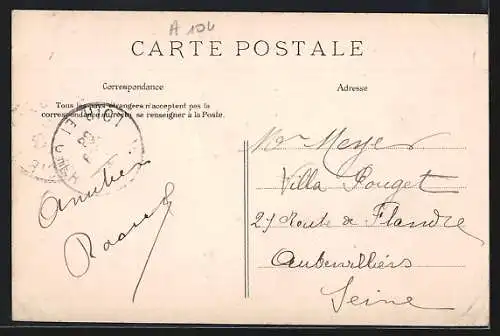 A 104
CARTE POSTALE
Correspondance
Adresse
Tous les pays étrangers n'acceptent pas la
correspondance au recto, se renseigner à la Poste.
LOIR-ET
Mr Meyer
Villa Pouget
27 Route de Flandre
Aubervilliers
Seine